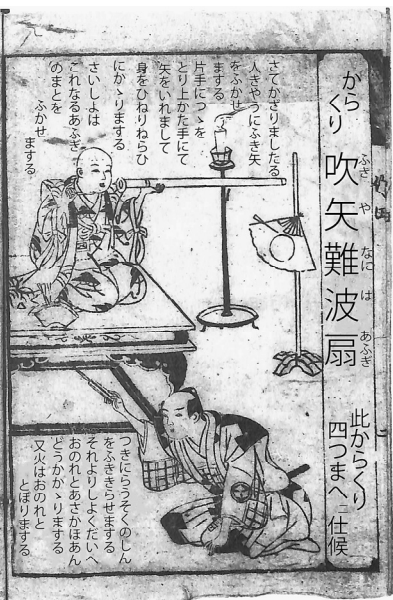 からくり
吹矢難波扇
ふさ や なに は あふぎ
此からくり
四つまへニ仕候
さてかざりましたる
人きやうにふき矢
をふかせ
まする
片手につゝを
とり上かた手にて
矢をいれまして
身をひねりねらひ
にかゝりまする
さいしよは
これなるあふぎ
のまとを
ふかせ
まする
つきにらうそくのしん
をふききらせまする
それよりしよくだいへ
おのれとあさかほあん
どうかかゝりまする
又火はおのれと
とぼりまする